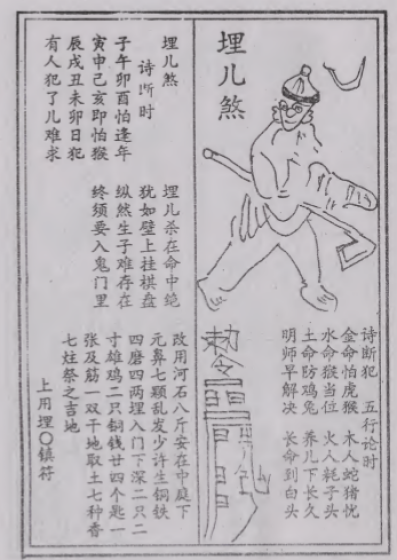 埋儿煞
诗断 五行论时
犯
金命怕虎猴 木人蛇猪忧
水命猴当位 火人耗子头
土命防鸡兔 养儿下长久
明师早解决 长命到白头
勅令
埋儿煞
诗断时
子午卯酉怕逢年
寅申己亥即怕猴
辰戌丑未卯日犯
有人犯了儿难求
埋儿杀在命中绝
犹如壁上挂棋盘
纵然生子难存在
终须要入鬼门里
改用河石八斤安在中庭下
元鼻七颗乱发少许生铜铁
四磨四两埋入门下深二尺二
寸雄鸡二只铜钱廿四个匙一
张及筋一双干地取土七种香
七炷祭之吉地
上用埋〇镇符